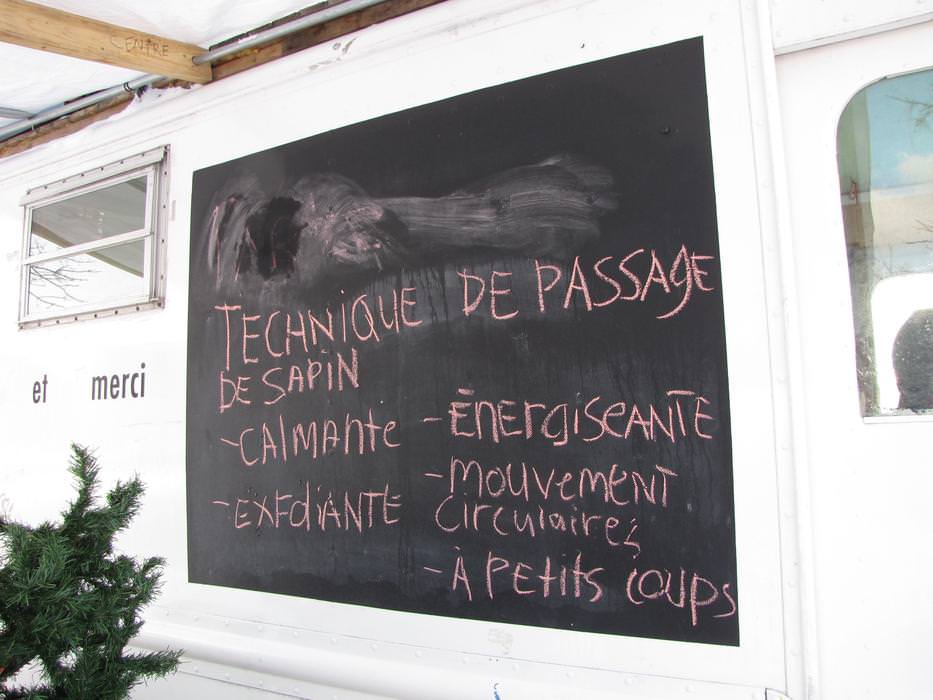 CENTRE
TECHNIQUE DE PASSAGE
DE SAPIN
-CAlMANte
-EXFOliANTE
-ÉNErgiSEANTE
-MOUVEMENT
Circulaires
-À PEtits COUPS
et merci